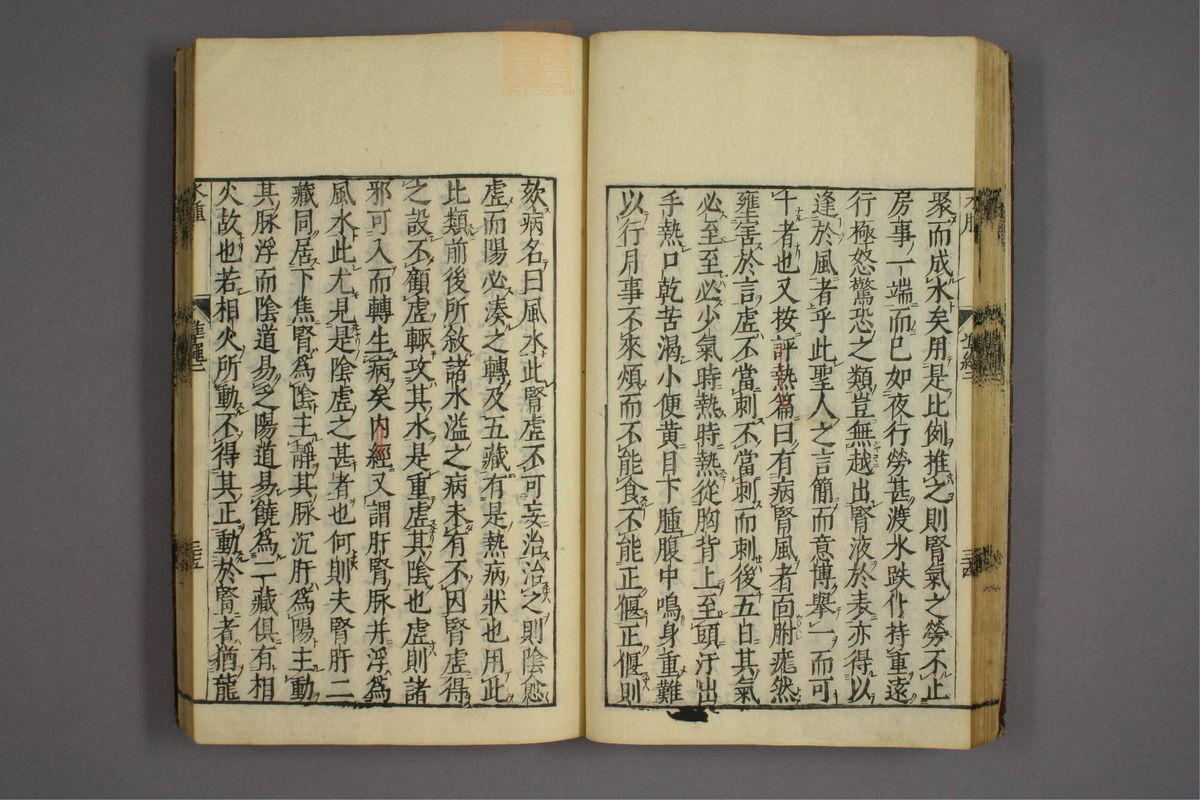 聚而成水矣用是比例推之則腎氣之勞不止
房事一端而已如夜行勞甚渡水跌仆持重遠
行極怒驚恐之類豈無越出腎液於表亦得以
逢於風者乎此聖人之言簡而意博舉一而可
十者也又按評熱篇曰有病腎風者面胕痝然
壅害於言虛不當刺不當刺而刺後五日其氣
必至至必少氣時熱時熱從胸背上至頭汗出
手熱口乾苦渴小便黃目下腫腹中鳴身重難
以行月事不來煩而不能食不能正偃正偃則
欬病名曰風水此腎虛不可妄治治之則陰愈
虛而陽必湊之轉及五藏有是熱病狀也用此
比類前後所敘諸水溢之病未有不因腎虛得
之設不顧虛輙攻其水是重虛其陰也虛則諸
邪可入而轉生病矣內經又謂肝腎脉并浮為
風水此尤見是陰虛之甚者也何則夫腎肝二
藏同居下焦腎為陰主靜其脉沉肝為陽主動
其脉浮而陰道易乏陽道易饒為二藏俱有相
火故也若相火所動不得其正動於腎者猶龍
水腫
準繩二
三五